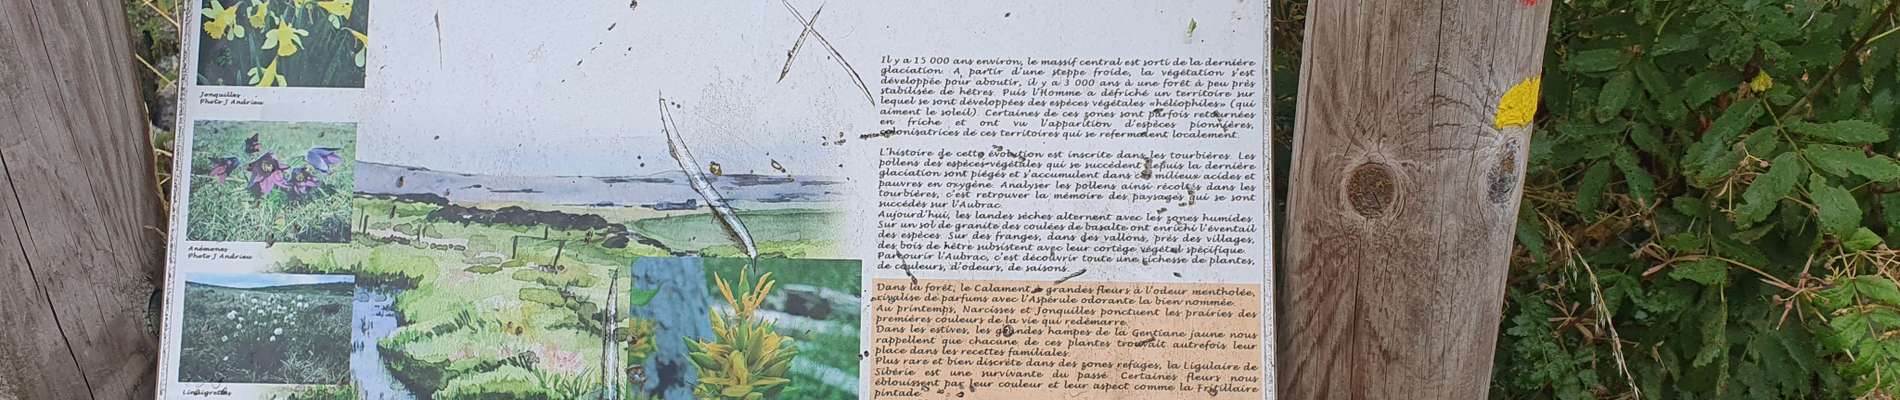 Jonquilles
Photo J Andrieu
Anémones
Photo J Andrieu
Linaigrettes
Il y a 15 000 ans environ, le massif central est sorti de la dernière
glaciation. A partir d'une steppe froide, la végétation s'est
développée pour aboutir, il y a 3 000 ans à une forêt à peu près
stabilisée de hêtres. Puis l'Homme a défriché un territoire sur
lequel se sont développées des espèces végétales «héliophiles» (qui
aiment le soleil). Certaines de ces zones sont parfois retournées
en friche et ont vu l'apparition d'espèces pionnières,
colonisatrices de ces territoires qui se referment localement.
L'histoire de cette évolution est inscrite dans les tourbières. Les
pollens des espèces végétales qui se succèdent depuis la dernière
glaciation sont piégés et s'accumulent dans ces milieux acides et
pauvres en oxygène. Analyser les pollens ainsi récoltés dans les
tourbières, c'est retrouver la mémoire des paysages qui se sont
succédés sur l'Aubrac.
Aujourd'hui, les landes sèches alternent avec les zones humides.
Sur un sol de granite des coulées de basalte ont enrichi l'éventail
des espèces. Sur des franges, dans des vallons, près des villages,
des bois de hêtre subsistent avec leur cortège végétal spécifique.
Parcourir l'Aubrac, c'est découvrir toute une richesse de plantes,
de couleurs, d'odeurs, de saisons.
Dans la forêt, le Calament à grandes fleurs à l'odeur mentholée,
rivalise de parfums avec l'Aspérule odorante la bien nommée.
Au printemps, Narcisses et Jonquilles ponctuent les prairies des
premières couleurs de la vie qui redémarre.
Dans les estives, les grandes hampes de la Gentiane jaune nous
rappellent que chacune de ces plantes trouvait autrefois leur
place dans les recettes familiales.
Plus rare et bien discrète dans des zones refuges, la Ligulaire de
Sibérie est une survivante du passé. Certaines fleurs nous
éblouissent par leur couleur et leur aspect comme la Fritillaire
pintade.